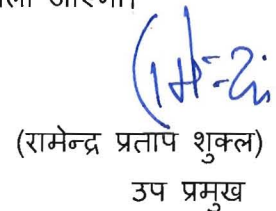 (रामेन्द्र प्रताप शुक्ल)
उप प्रमुख